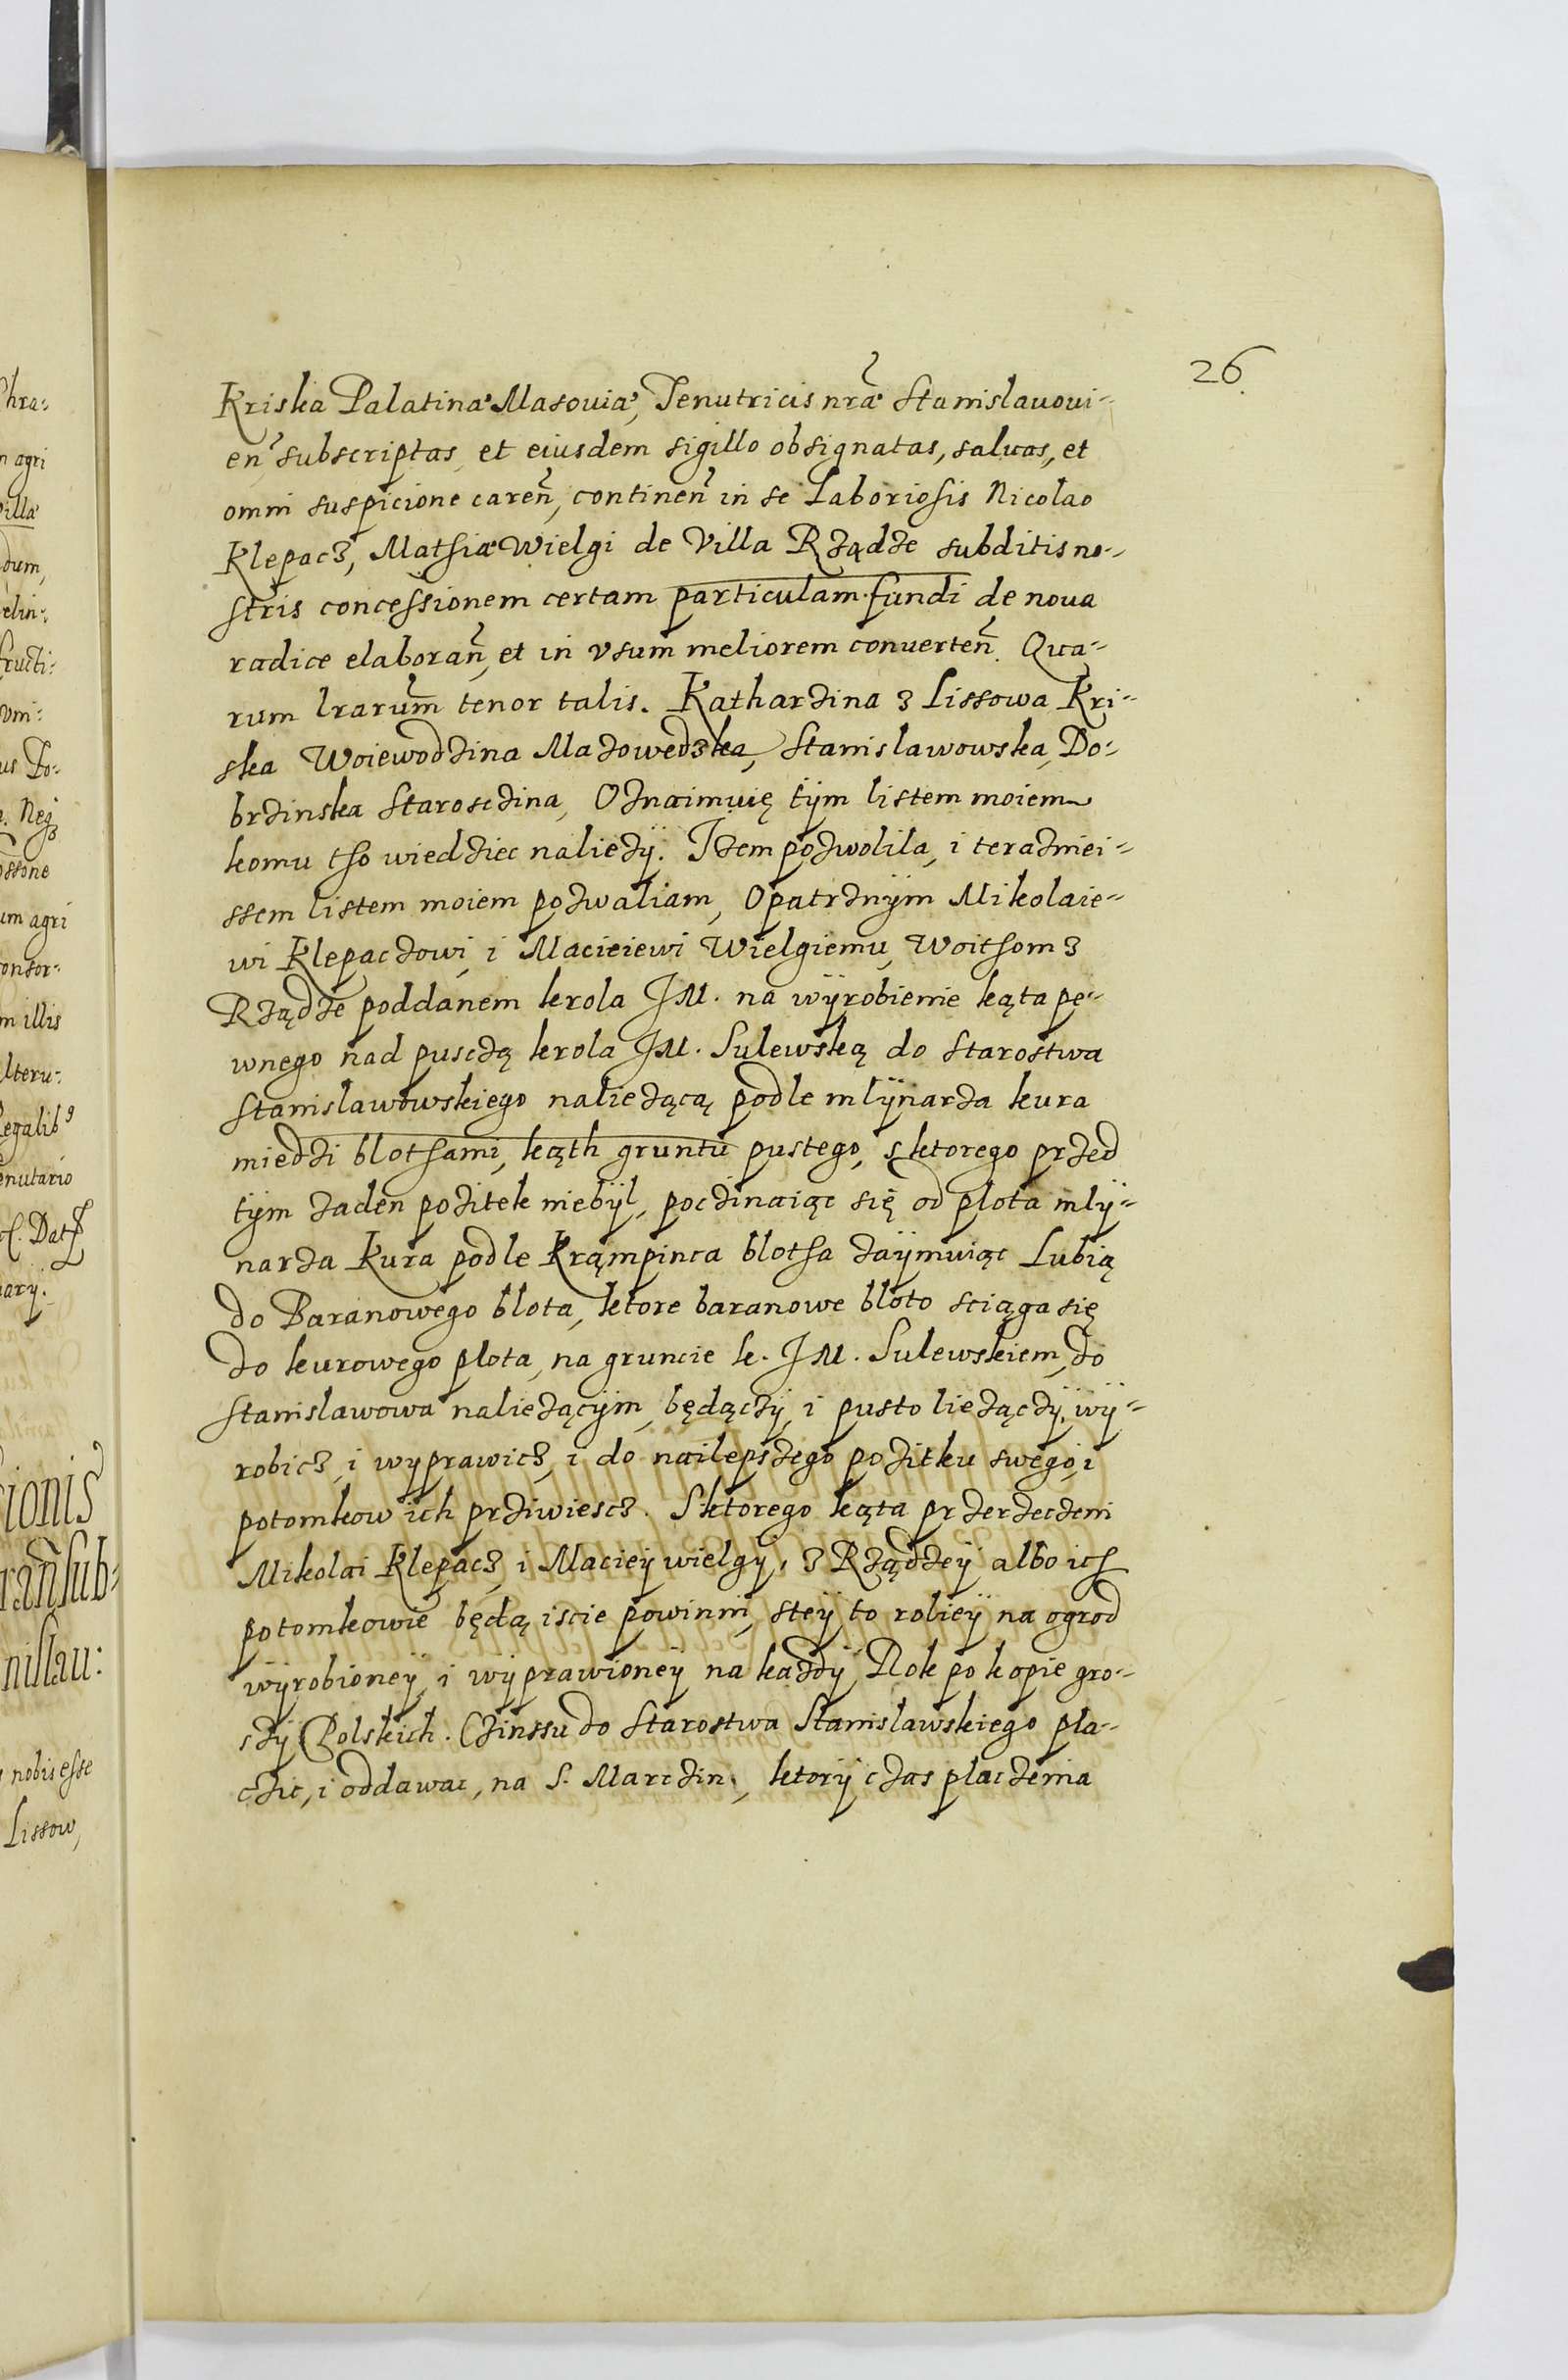 26
Kriska Palatinæ Masouiæ, Tenutricis nræ Stanislauoui-
en̄ subscriptas, et eiusdem sigillo obsignatas, saluas, et
omni suspicione caren̄, continen̄ in se Laboriosis Nicolao
Klepacz, Mathiæ Wielgi de Villa Rządze subditis no-
stris concessionem certam particulam fundi de noua
radice elaboran̄, et in vsum meliorem conuerten̄. Qua-
rum lrarum̄ tenor talis. Katharzina z Lissowa Kri-
ska Woiewodzina Mazowedzka, Stanislawowska, Do-
brzinska Starosczina, Oznaimuię tÿm listem moiem
komu tho wiedziec nalieżÿ. Iżem pozwolila, i teraznei-
ssem listem moiem pozwaliam, Opatrznÿm Mikolaie-
wi Klepaczowi, i Macieiewi Wielgiemu, Woithom z
Rządze poddanem krola JM. na wÿrobienie kąta pe-
wnego nad pusczą krola JM. Sulewską do Starostwa
Stanislawowskiego nalieżącą, podle mlÿnarza kura
miedzi blothami, kąth gruntu pustego, s ktorego przed
tÿm żaden pożitek niebÿl, poczinaiąc się od plota mlÿ-
narza Kura podle Krąmpinca blotha zaÿmuiąc Lubią
do Baranowego blota, ktore baranowe bloto sciąga się
do kurowego plota, na gruncie k. JM. Sulewskiem, do
Stanislawowa nalieżącÿm, będączÿ, i pusto liezączÿ, wÿ-
robicz, i wyprawicz, i do nailepszego pożitku swego, i
potomkow ich prziwiescz. Sktorego kąta przerzeczeni
Mikolai Klepacz, i Macieÿ wielgÿ, z Rządzeÿ albo ich
potomkowie będą iscie powinni, steÿ to rolieÿ na ogrod
wÿrobioneÿ, i wÿprawioneÿ na każdÿ Rok po kopie gro-
szÿ Polskich. Czinssu do Starostwa Stanislawskiego pla-
czic, i oddawac, na S. Marczin, ktorÿ czas placzenia